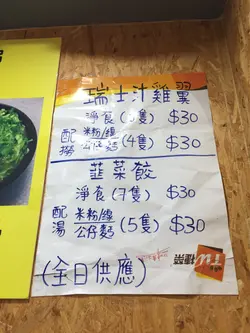 瑞士汁雞翼
淨食(5隻) $30
配撈 米粉/線 公仔麵 (4隻) $30
韮菜餃
淨食(7隻) $30
配湯 米粉/線 公仔麵 (5隻) $30
(全日供應)